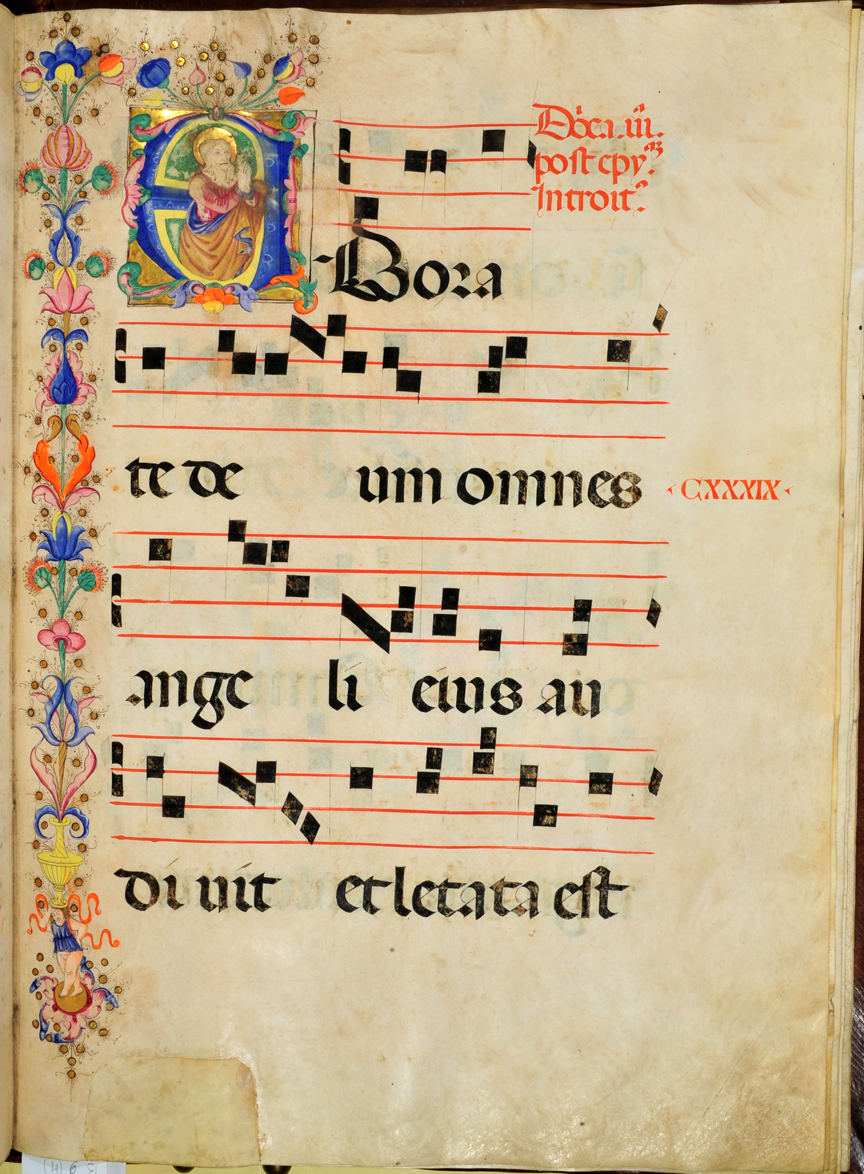 D̄o͞ca. iii.
post epy͞.
Introit͞.
Dora
te de um omnes
CXXXIX
ange li eius au
di uit et letata est